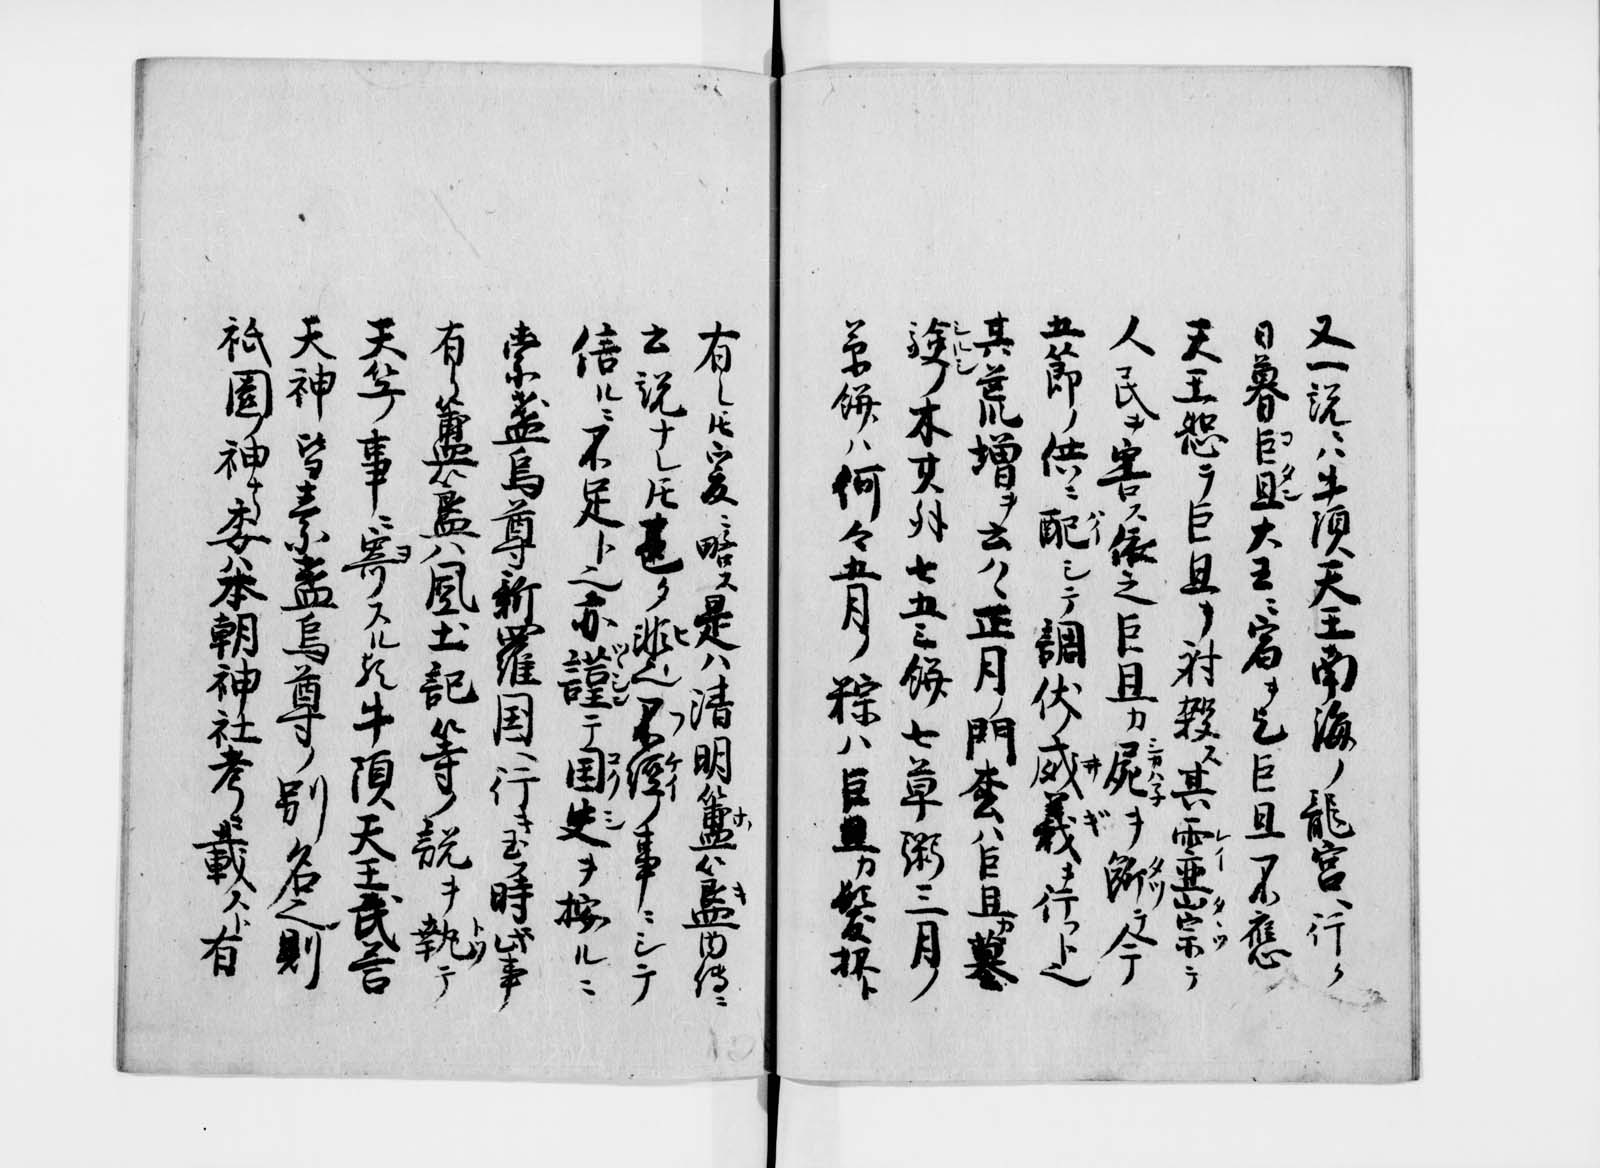 又一説ニハ牛頭天王南海ノ龍宮ヘ行ク
日暮巨旦大王ニ宿ヲ乞巨旦不應
天王怨テ巨旦ヲ対殺ス其霊祟テ
人民ヲ害ス依之巨旦カ屍ヲ節テ今
五節ノ供ニ配シテ調伏ノ威義ヲ行フト也
其荒増ヲ云ハヽ正月ノ門松ハ巨旦カ墓
験ノ木 七五三餅七草粥三月ノ
草餅ハ何々五月ノ粽ハ巨旦カ髪抔ト
有レ𪜈爰ニ略ス是ハ清明簠簋内傳ニ
云説ナレ𪜈甚タ非也不經ノ事ニシテ
信ルニ不足ト也亦謹テ国史ヲ按ルニ
素盞烏尊新羅国ヘ行キ玉フ時此事
有ル簠簋ハ風土記等ノ説ヲ執テ
天竺ノ事ニ寄スル牛頭天王武答
天神皆素盞烏尊ノ別名也則
祇園ノ神ナリ委ハ本朝神社考ニ載スト有